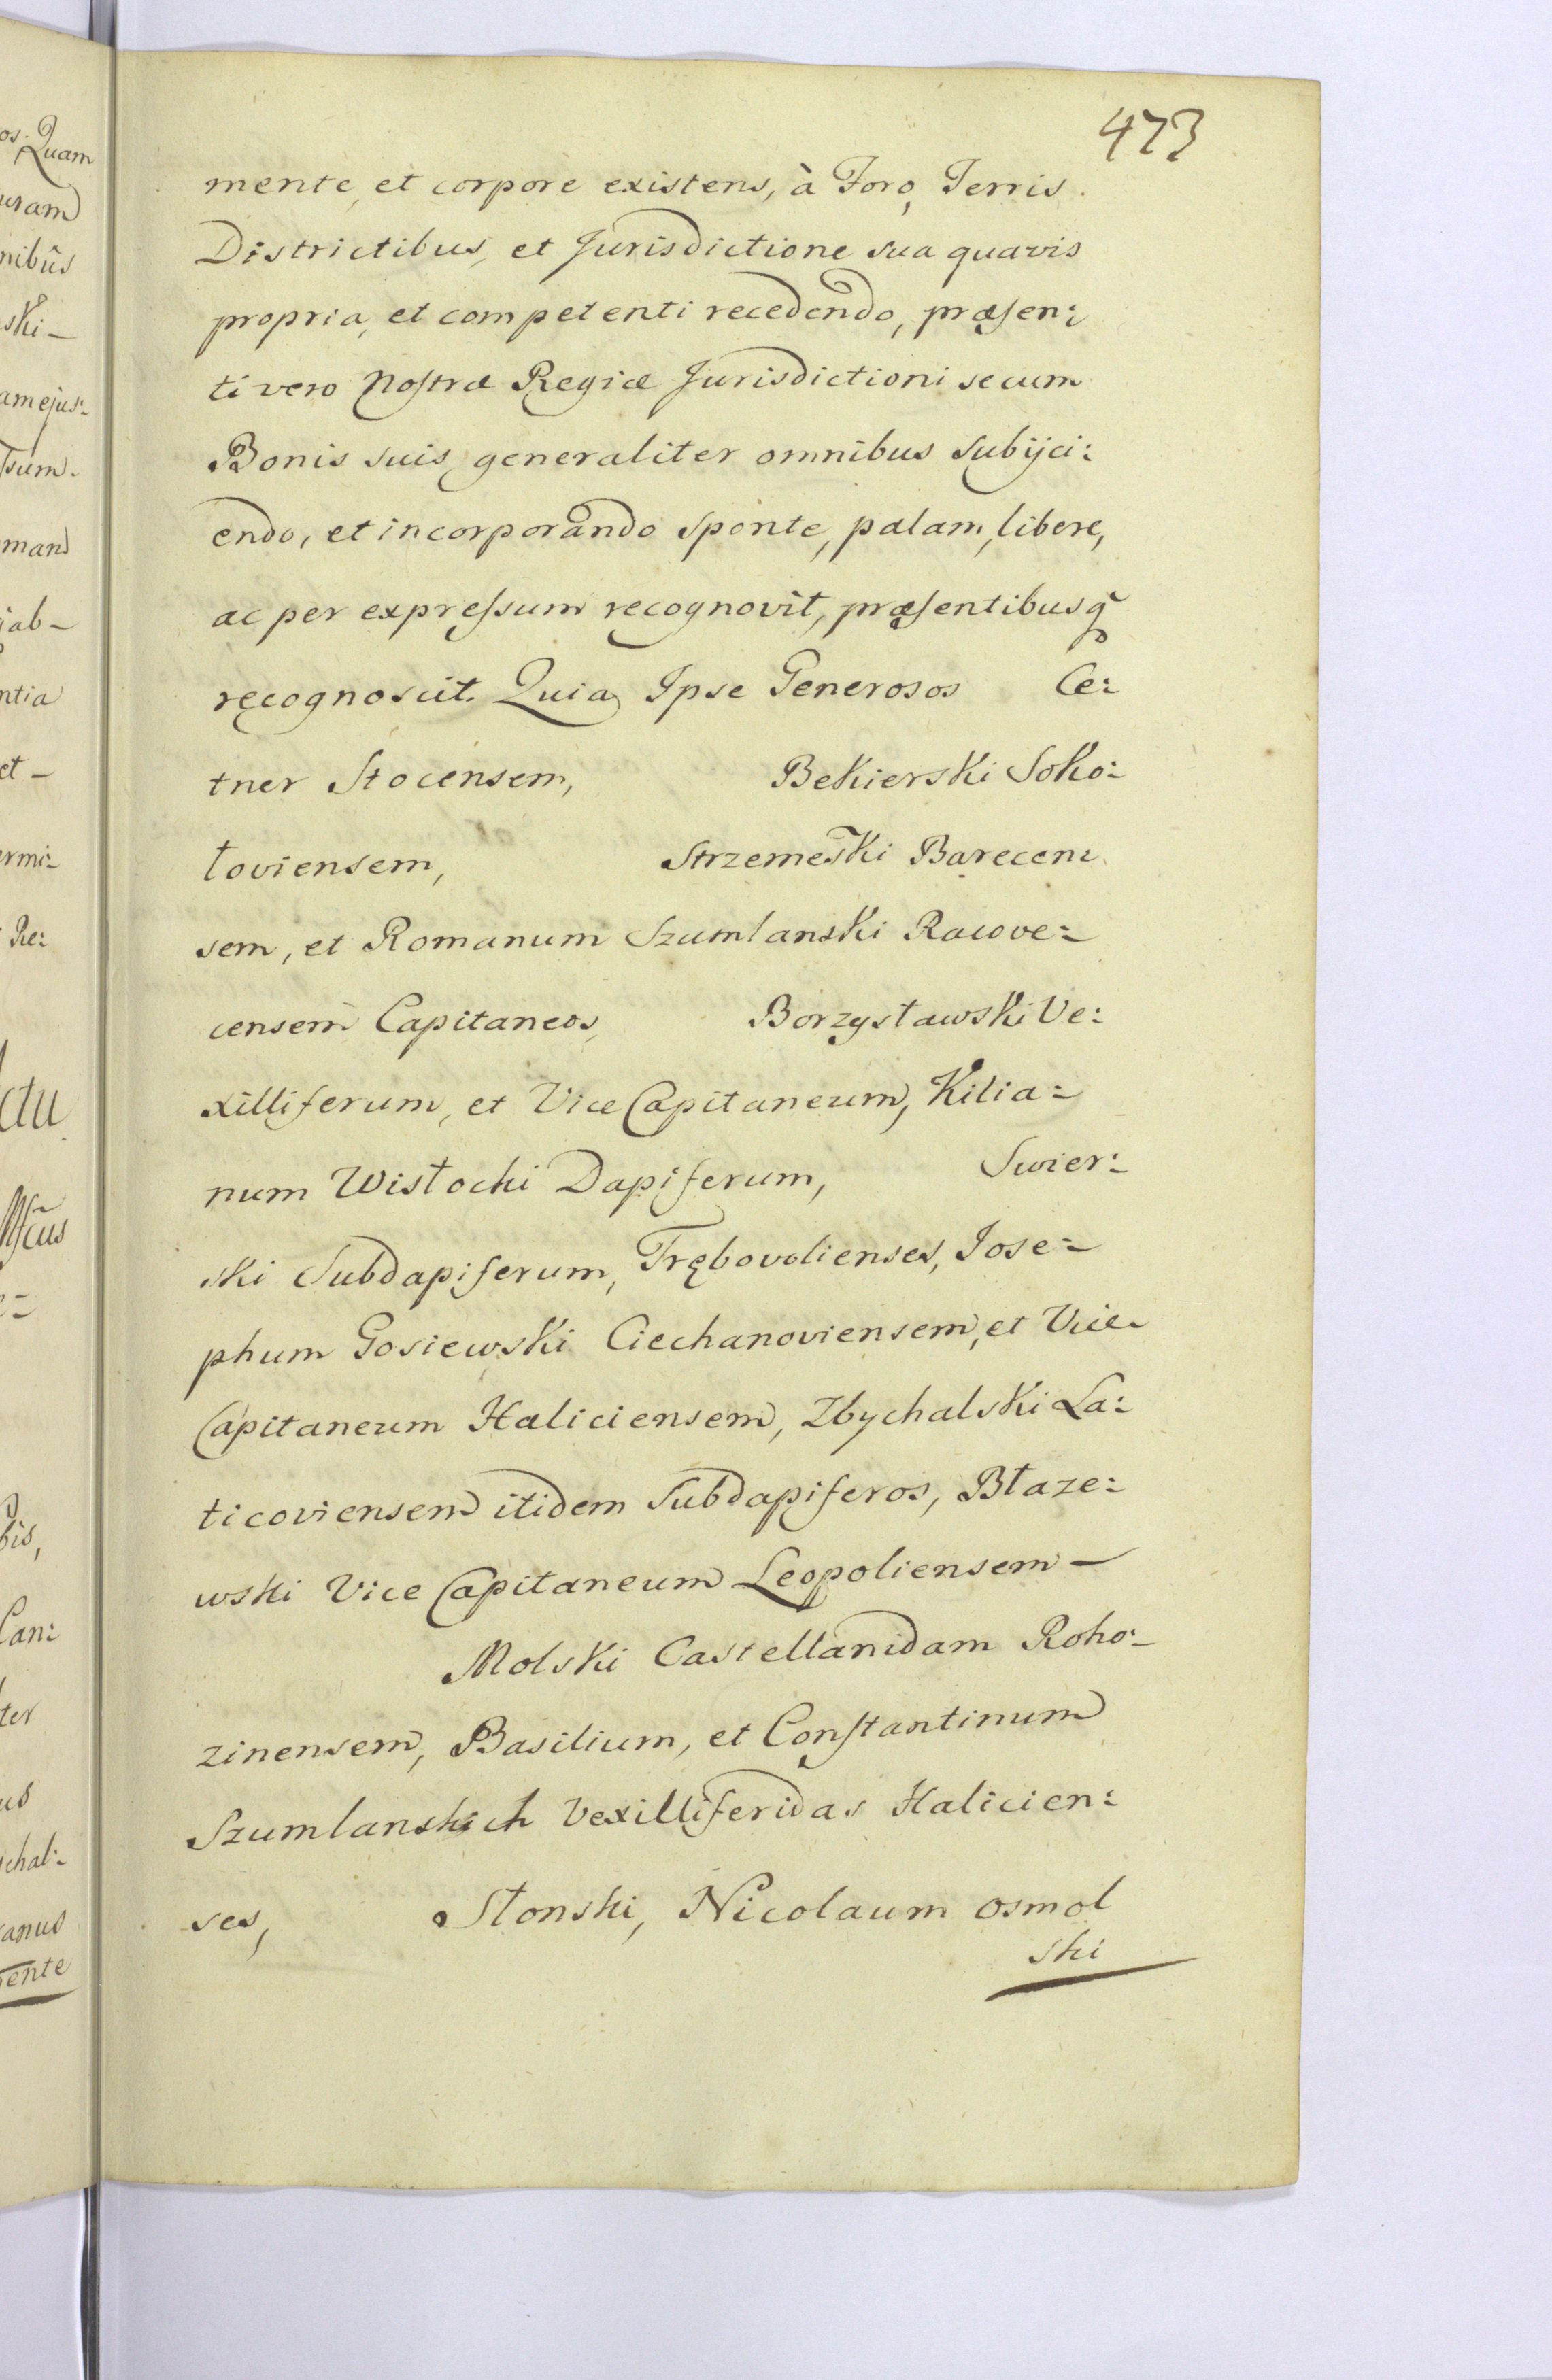 473
mente, et corpore existens, à Foro, Terris.
Districtibus, et Jurisdictione sua quavis
propria, et competenti recedendo, præsen:
ti vero Nostræ Regiæ Jurisdictioni se cum
Bonis suis, generaliter omnibus subijci:
endo, et incorporando sponte, palam, libere,
ac per expressum recognovit, præsentibusq̃
recognoscit. Quia Ipse Generosos Ce:
tner Stocensem, Bekierski Soko:
łoviensem, Strzemeski Barecen:
sem, et Romanum Szumlanski Racove:
censem Capitaneos, Borzysławski Ve:
xilliferum, et Vice Capitaneum, Kilia:
num Wisłocki Dapiferum, Swier:
ski Subdapiferum, Trębovolienses, Jose:
phum Gosiewski Ciechanoviensem, et Vice
Capitaneum Haliciensem, Zbychalski La:
ticoviensem itidem Subdapiferos, Błaze:
wski Vice Capitaneum Leopoliensem –
Molski Castellanidam Roho:
zinensem, Basilium, et Constantinum
Szumlanskich Vexilliferidas Halicien:
ses, Słonski, Nicolaum Osmol
ski
os. Quam
uram
nibûs
ski –
am ejus:
sum.
man
jab –
ntia
et –
ermi:
Re:
ctu
bis,
Can:
ter
us
ychal:
anus
sente